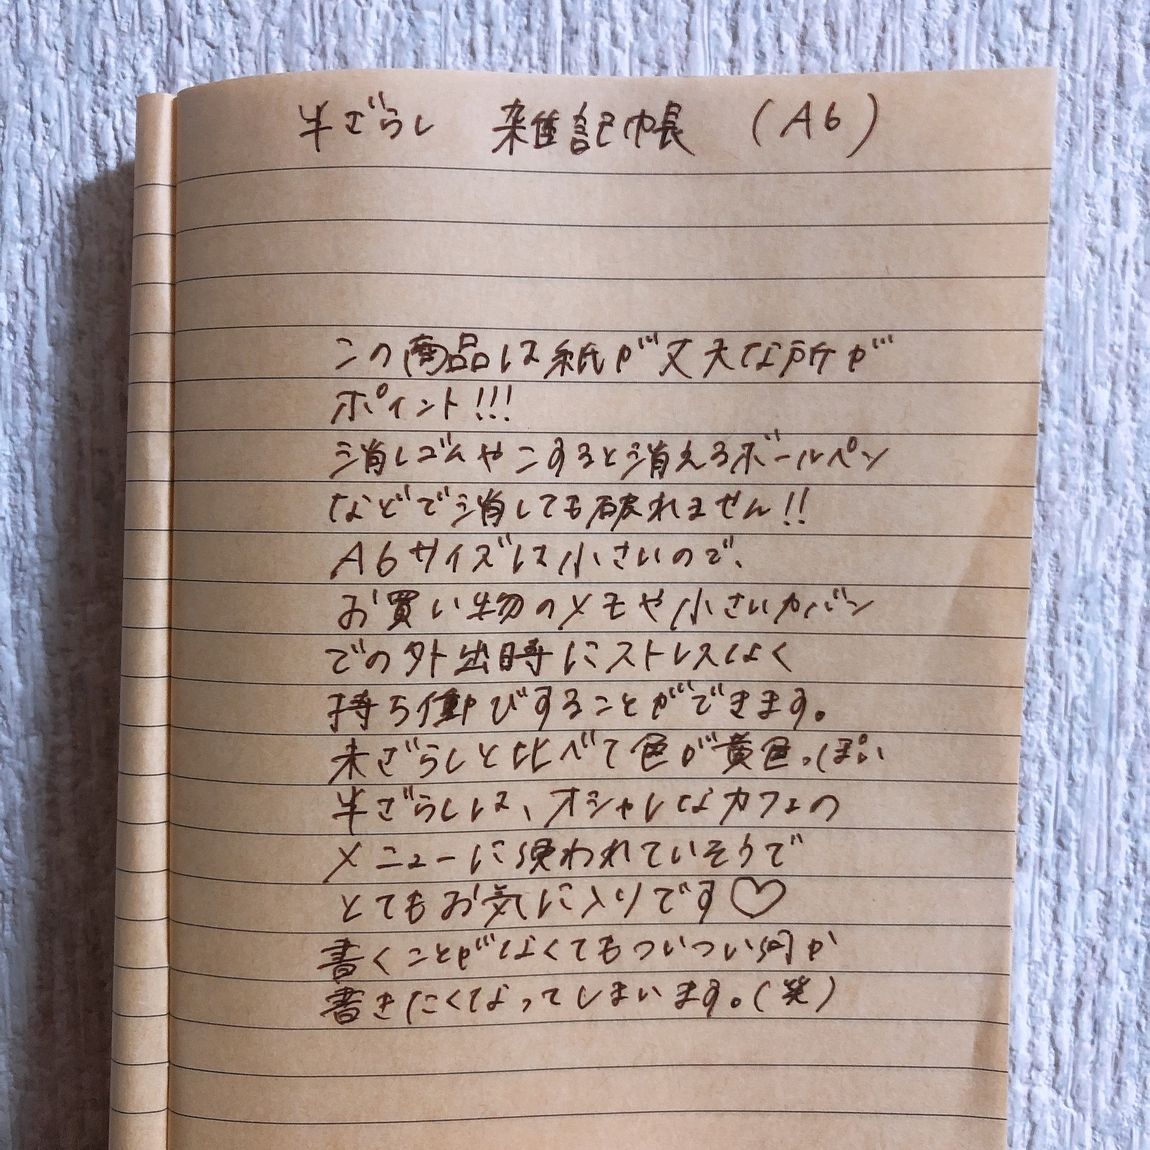 半ざらし 雑記帳 (A6)
この商品は紙が丈夫な所が
ポイント!!!
消しゴムやこすると消えるボールペン
などで消しても破れません!!
A6サイズは小さいので、
お買い物のメモや小さいカバン
での外出時にストレスなく
持ち運びすることができます。
未ざらしと比べて色が黄色っぽい
半ざらしは、オシャレなカフェの
メニューに使われていそうで
とてもお気に入りです♡
書くことがなくてもついつい何か
書きたくなってしまいます。(笑)